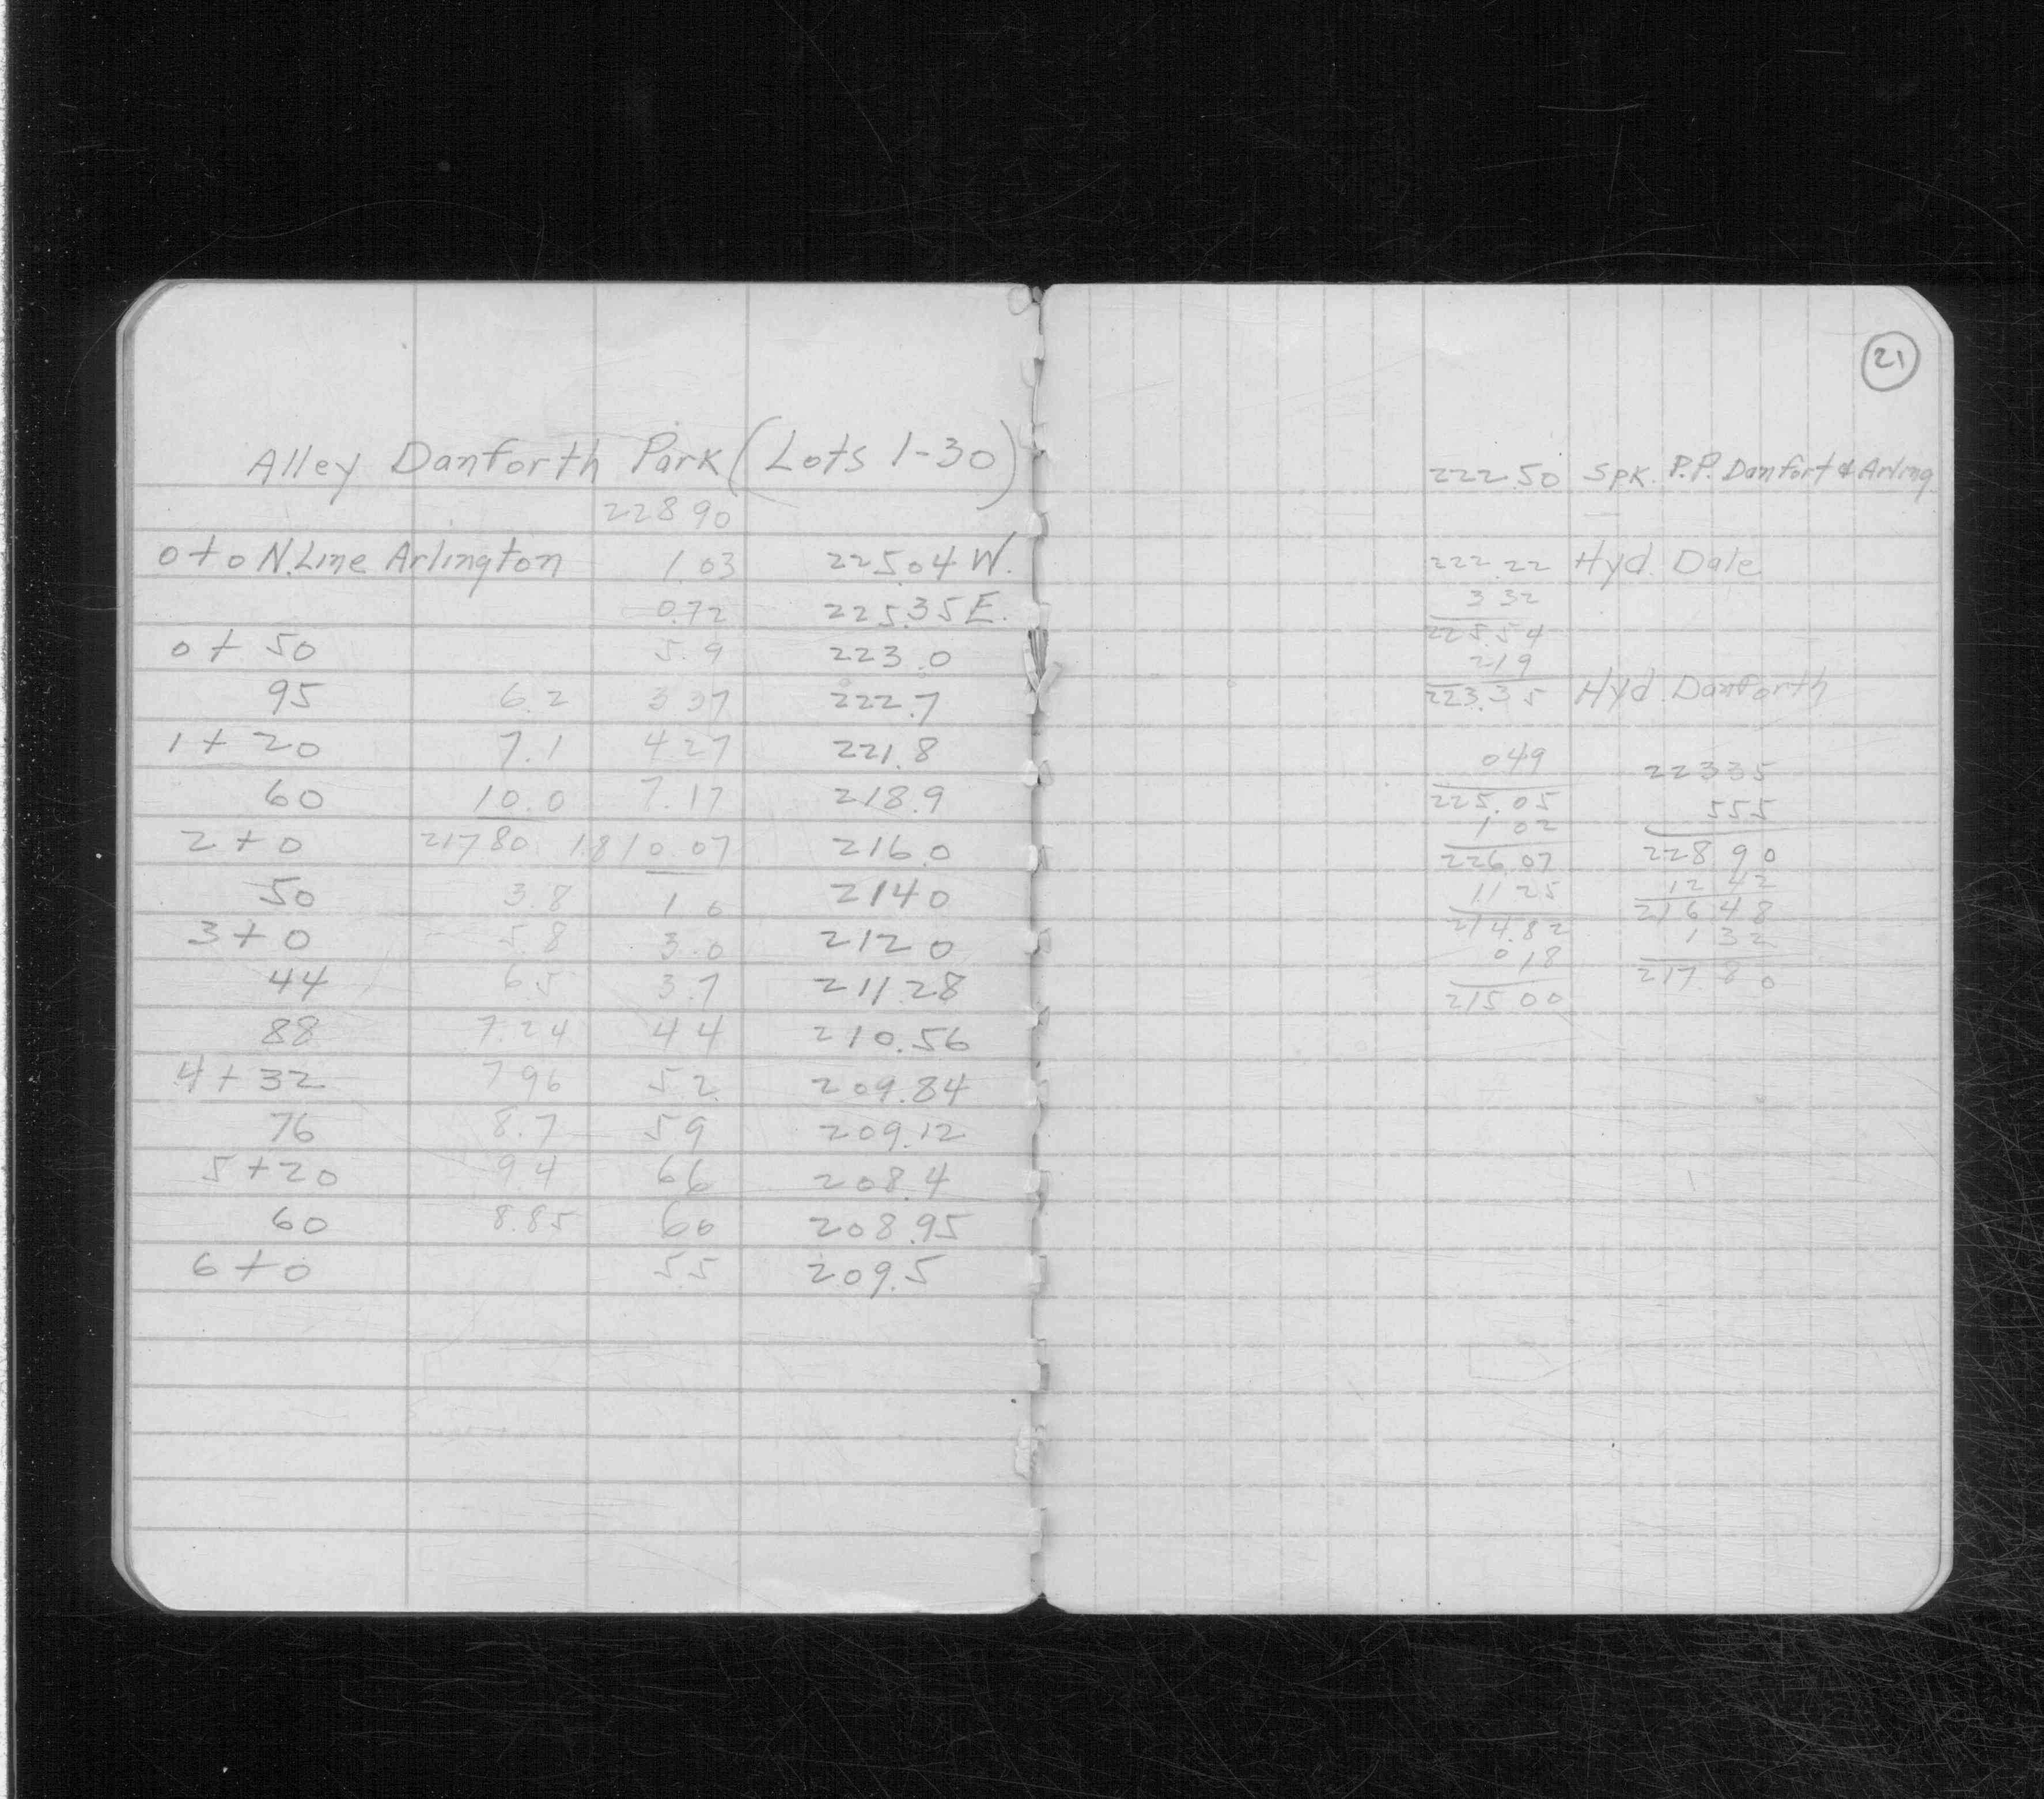 Alley Danforth Park (Lots 1-30)
228 90
0+0 N. Line Arlington 1.03 225.04 W.
0.72 225.35 E.
0+50 5.9 223.0
95 6.2 3 37 222.7
1+20 7.1 4 27 221.8
60 10.0 7.17 218.9
2+0 217 80 1.8 10.07 216.0
50 3.8 1 0 214 0
3+0 5.8 3.0 212 0
44 6.5 3.7 211 28
88 7.24 4 4 210.56
4+32 7 96 5 2 209.84
76 8.7 5 9 209.12
5+20 9.4 6 6 208.4
60 8.85 6 0 208.95
6+0 5 5 209.5
21
222.50 Spk. P.P. Danfort & Arling.
222.22 Hyd. Dale
3 32
225.54
2 19
223.35 Hyd. Danforth
0 49 223 35
225.05 5 55
1 02
226.07 228 90
11 25 12 42
214.82 216 48
0 18 1 32
215 00 217 80